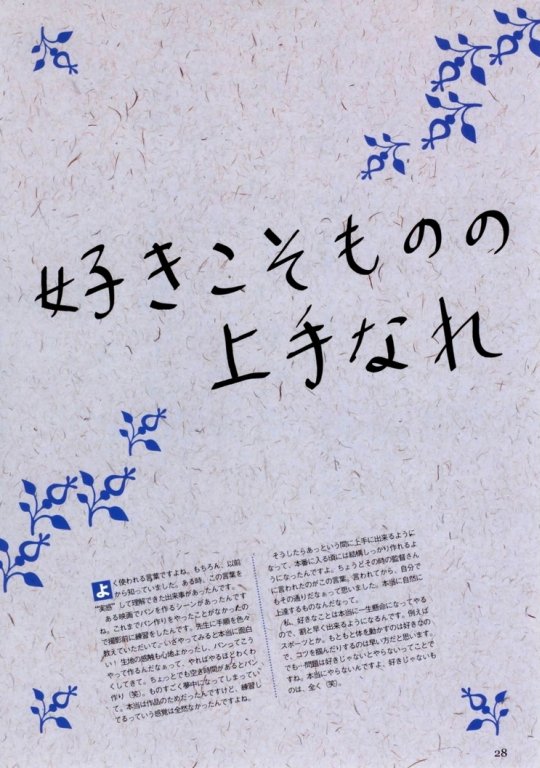 好きこそものの
上手なれ
よく使われる言葉ですよね。もちろん、以前
から知っていました。ある時、この言葉を
"実感"して理解できた出来事があったんです。
ある映画でパンを作るシーンがあったんです
ね。これまでパン作りをやったことがなかったの
で撮影前に練習をしたんです。先生に手順を色々
教えていただいて。いざやってみると本当に面白
い！生地の感触も心地よかったし、パンってこう
やって作るんだなぁって、やればやるほどわくわ
くしてきて。ちょっとでも空き時間があるとパン
作り（笑）。ものすごく夢中になってしまってい
て。本当は作品のためだったんですけど、練習し
てるっていう感覚は全然なかったんですよね。
そうしたらあっという間に上手に出来るように
なって、本番に入る頃には結構しっかり作れるよ
うになったんですよ。ちょうどその時の監督さん
に言われたのがこの言葉。言われてから、自分で
もその通りだなぁって思いました。本当に自然に
上達するものなんだなって。
私、好きなことは本当に一生懸命になってやる
ので、割と早く出来るようになるんです。例えば
スポーツとか。もともと体を動かすのは好きなの
で、コツを掴んだりするのは早い方だと思います。
でも…問題は好きじゃないとやらないってことで
すね。本当にやらないんですよ、好きじゃないも
のは、全く（笑）。
28